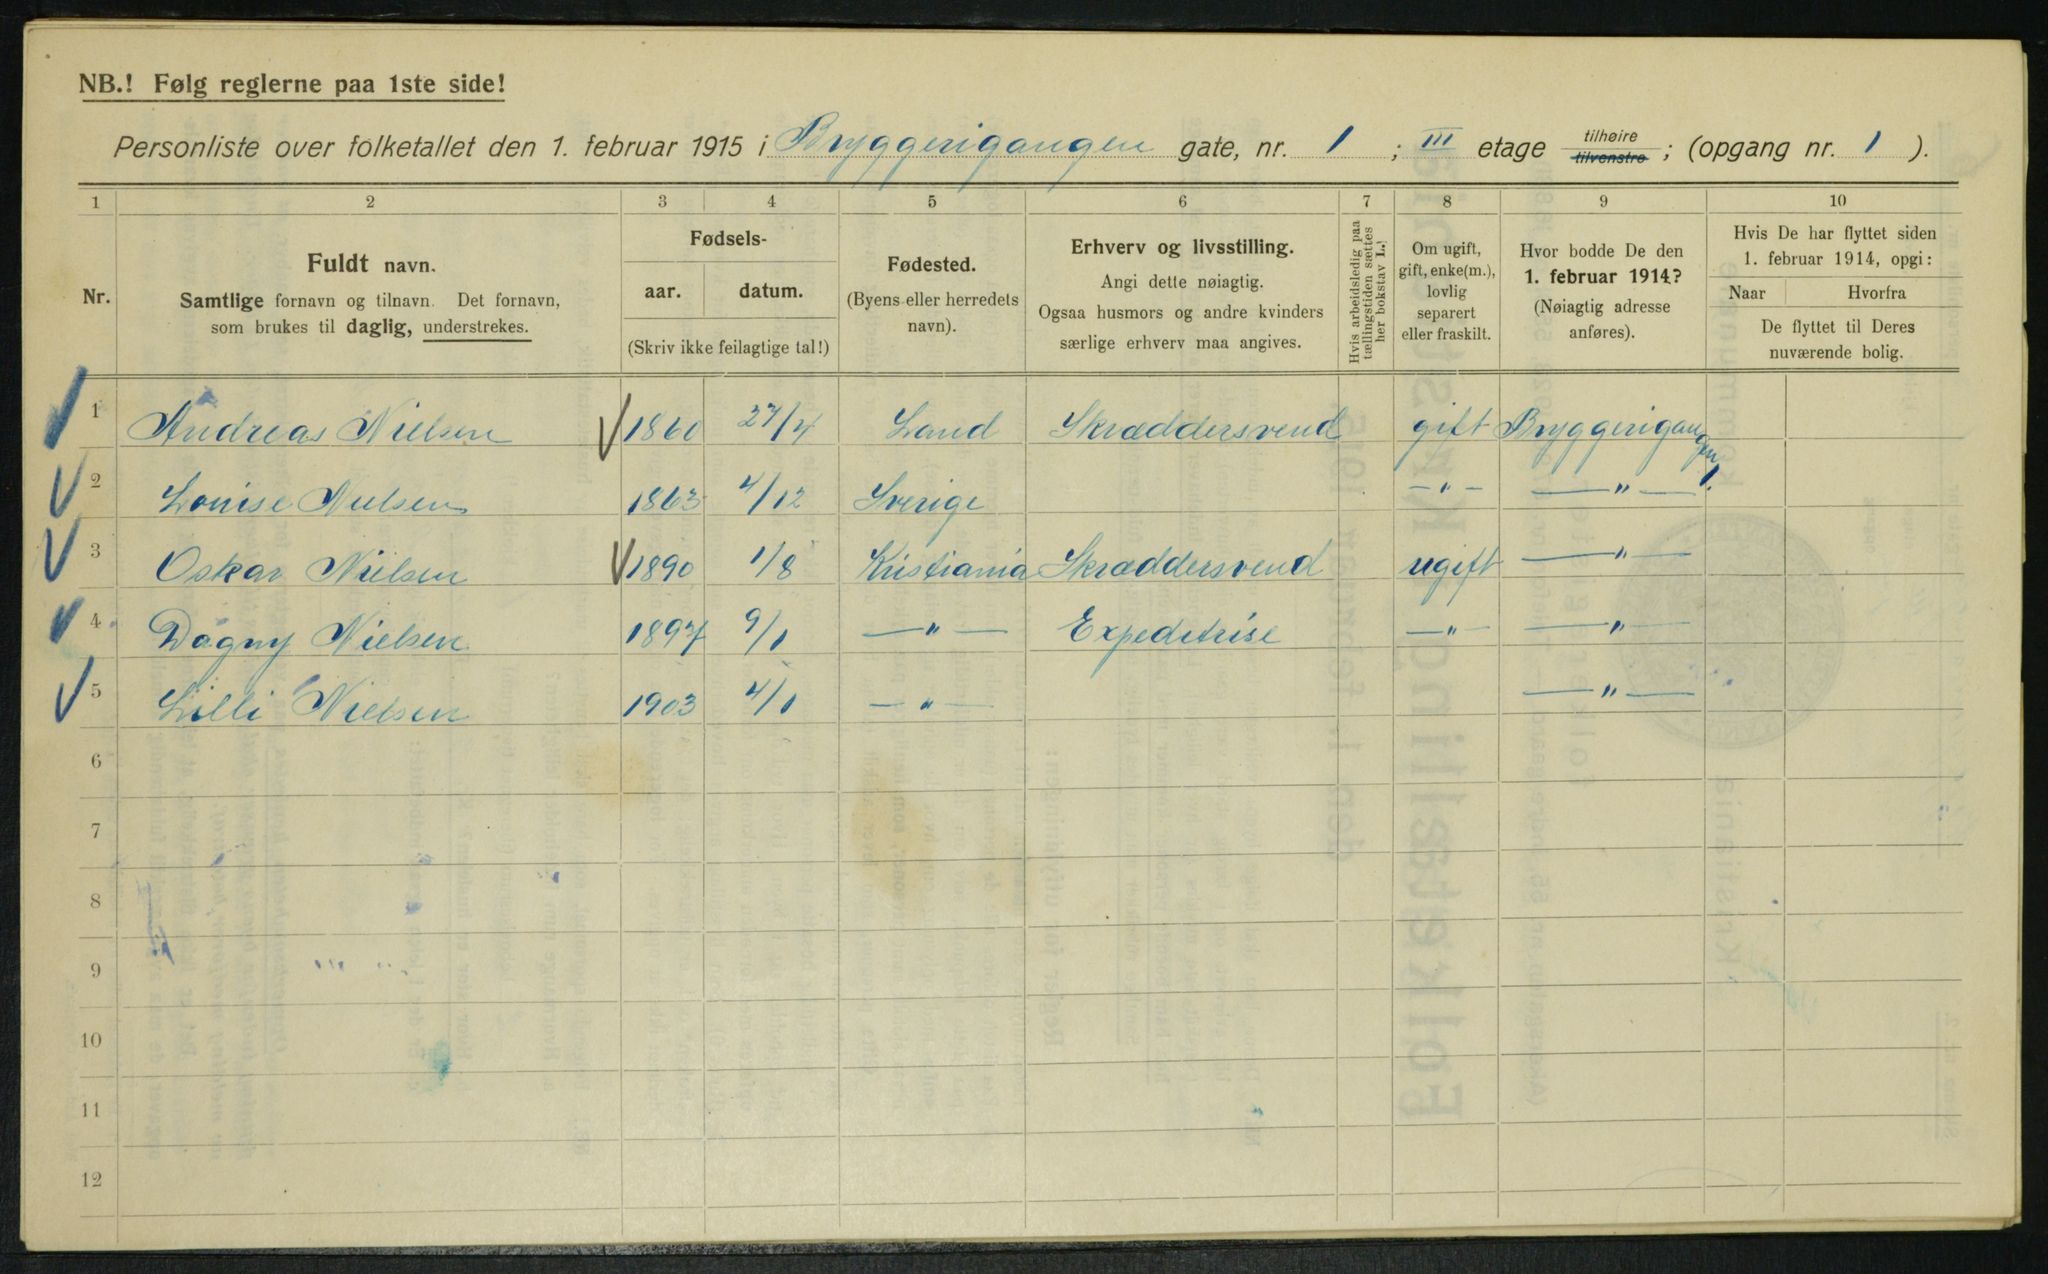 NB.! Følg reglerne paa 1ste side!
Personliste over folketallet den 1. februar 1915 i Bryggerigangen gate, nr. 1 ; III etage tilhøire tilvenstre ; (opgang nr. 1 ).
1 2 3 4 5 6 7 8 9 10
Nr.
Fuldt navn.
Samtlige fornavn og tilnavn. Det fornavn,
som brukes til daglig, understrekes.
Fødsels-
aar. datum.
(Skriv ikke feilagtige tal!)
Fødested.
(Byens eller herredets
navn).
Erhverv og livsstilling.
Angi dette nøiagtig.
Ogsaa husmors og andre kvinders
særlige erhverv maa angives.
Hvis arbeidsledig paa
tællingstiden sættes
her bokstav L.)
Om ugift,
gift, enke(m.),
lovlig
separert
eller fraskilt.
Hvor bodde De den
1. februar 1914?
(Nøiagtig adresse
anføres).
Hvis De har flyttet siden
1. februar 1914, opgi:
Naar Hvorfra
De flyttet til Deres
nuværende bolig.
1 Andreas Nielsen 1860 27/4 Land Skræddersvend gift Bryggerigangen 1.
2 Louise Nielsen 1863 4/12 Sverige — " — — " —
3 Oskar Nielsen 1890 1/8 Kristiania Skræddersvend ugift — " —
4 Dagny Nielsen 1897 9/1 — " — Expeditrise — " — — " —
5 Lilli Nielsen 1903 4/1 — " — — " —
6
7
8
9
10
11
12